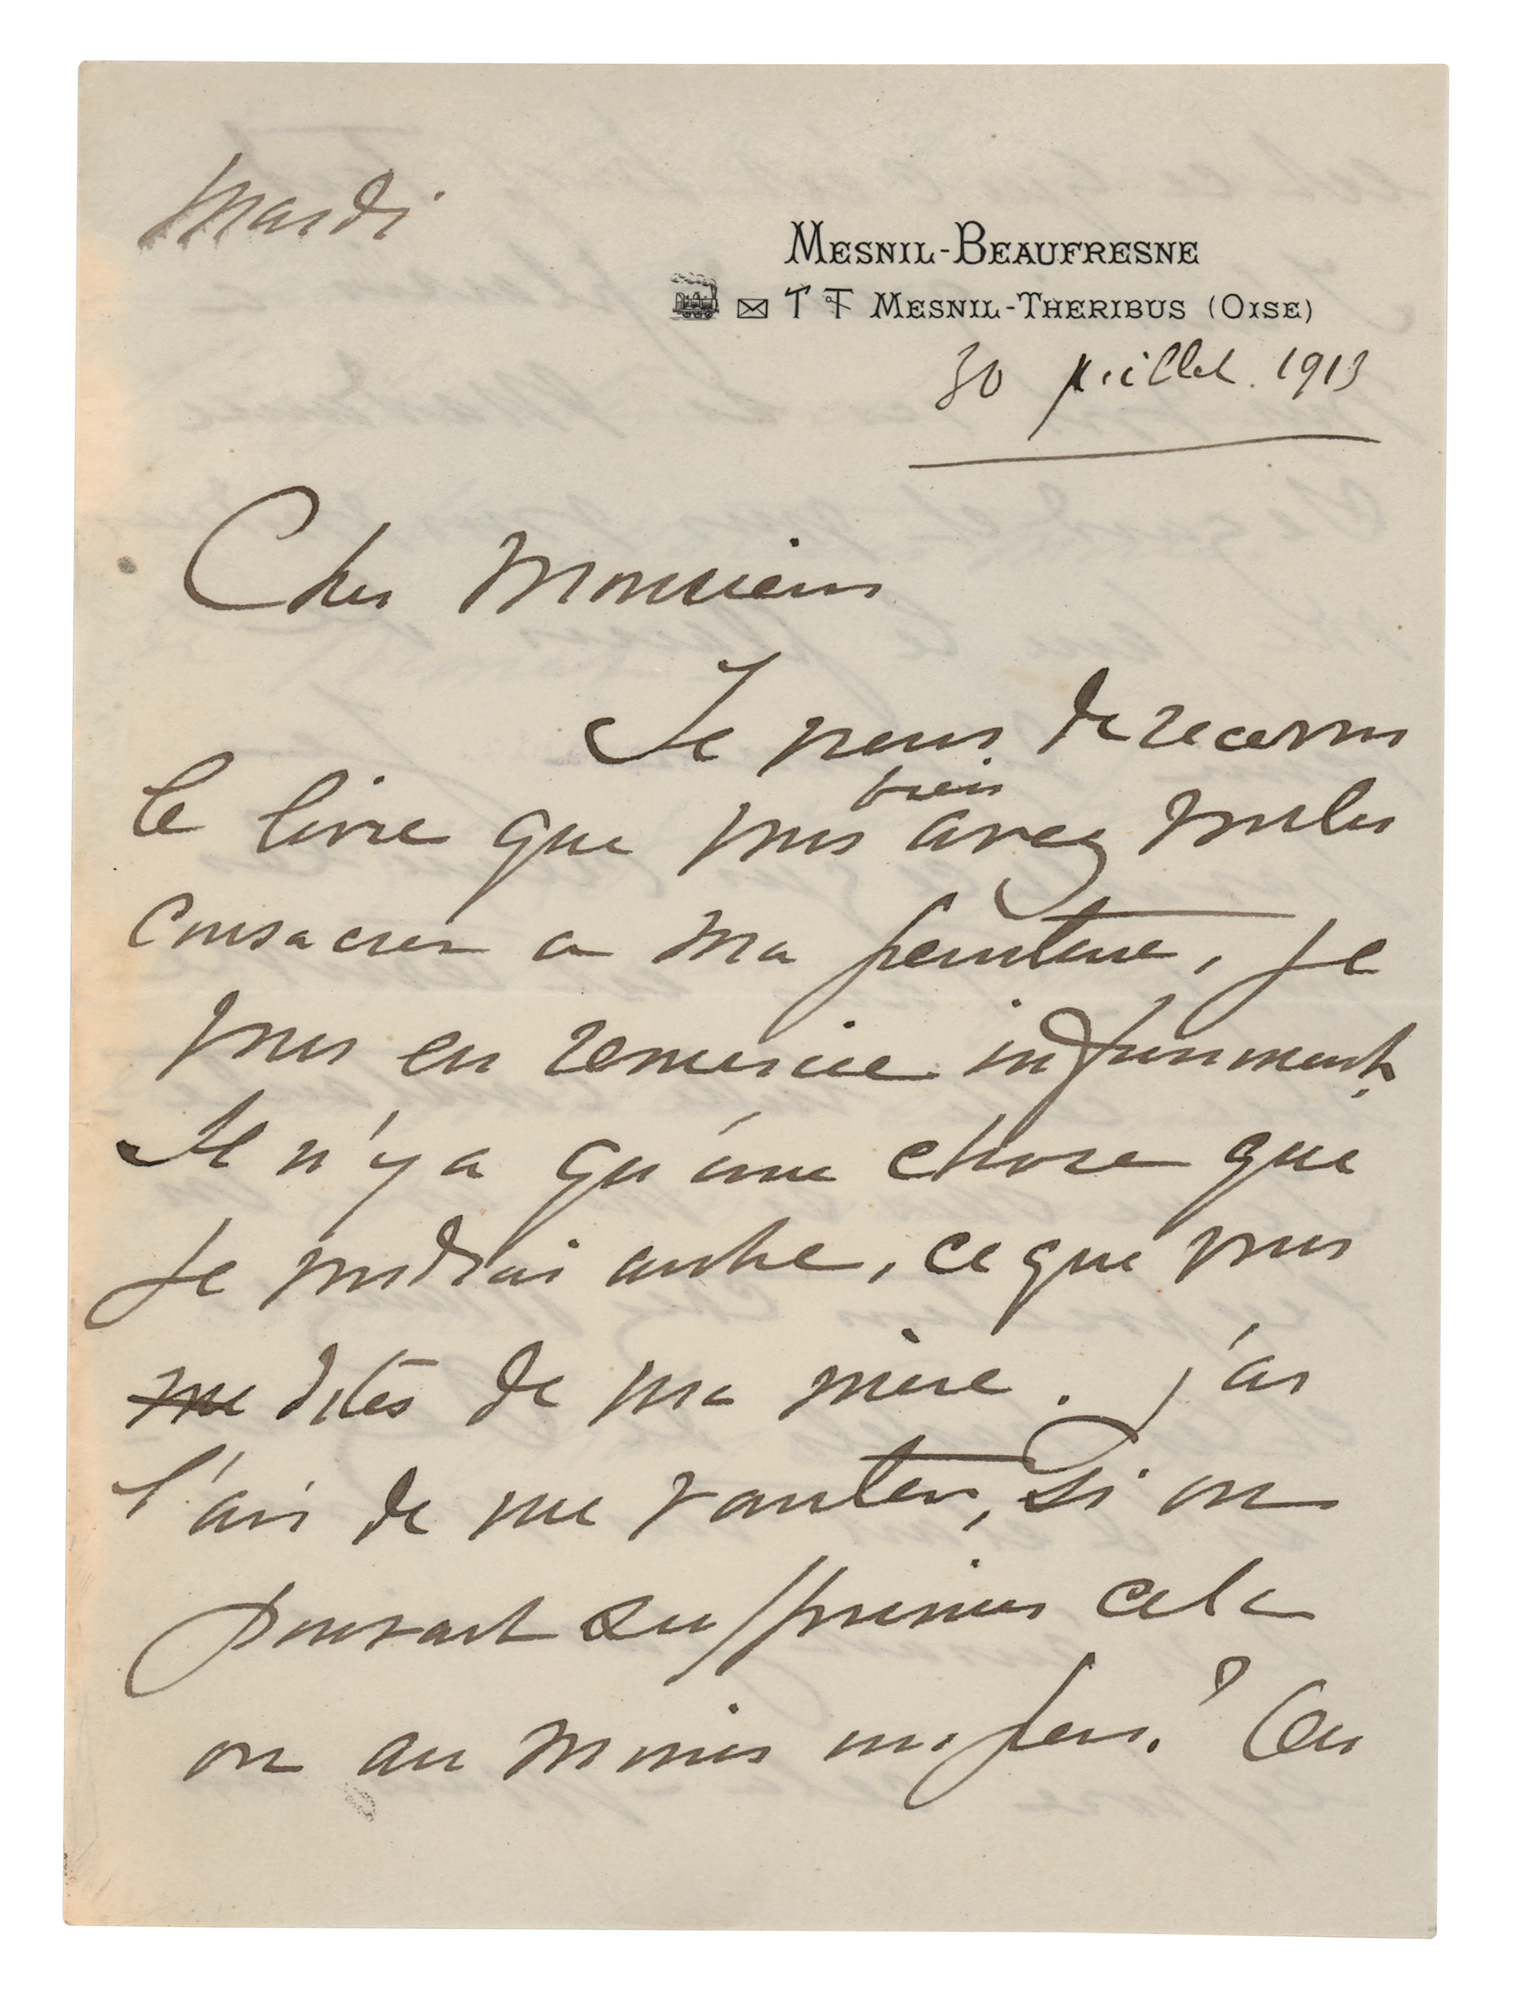 Mardi
MESNIL-BEAUFRESNE
T T MESNIL-THERIBUS (OISE)
30 juillet. 1913
Cher Monsieur
Je viens de recevoir
bien
le livre que vous avez voulu
consacrer a ma peinture, je
vous en remercie infiniment.
Il n'y a qu'une chose que
je voudrais autre, ce que vous
me dites de ma mère. j'ai
l'air de me vanter, si on
pouvait supprimer cela
on au moins un peu? Ou